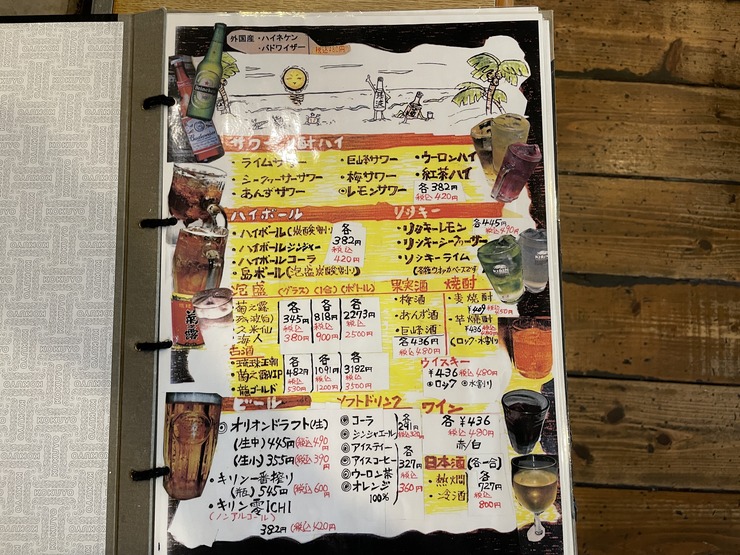 外国産・ハイネケン
・バドワイザー
サワー・酎ハイ
・ライムサワー ・巨峰サワー ・ウーロンハイ
・シークヮーサーサワー ・梅サワー ・紅茶ハイ
・あんずサワー ◎レモンサワー 各382円
税込420円
ハイボール
・ハイボール(炭酸割り)
・ハイボールジンジャー
・ハイボールコーラ
・島ボール(泡盛炭酸割り)
各
382円
税込
420円
リッキー
各445円
税込490円
・リッキーレモン
・リッキーシークヮーサー
・リッキーライム
(各種ウォッカベースです)
泡盛 (グラス) (1合) (ボトル)
菊之露
久米仙
海人
各 各 各
345円 818円 2273円
税込 税込 税込
380円 900円 2500円
古酒
・琉球王朝
・菊之露VIP
・龍ゴールド
各 各 各
482円 1091円 3182円
税込 税込 税込
530円 1200円 3500円
果実酒
・梅酒
・あんず酒
・巨峰酒
各436円
税込480円
焼酎
・麦焼酎
¥409 税込450円
・芋焼酎
¥436 税込480円
(ロック・水割り)
ウイスキー
¥436 税込480円
◎ロック ◎水割り
ビール
◎オリオンドラフト(生)
(生中)445円(税込490円
(生小)355円(税込390円
・キリン一番搾り
(瓶)545円(税込600円
・キリン零ICHI
(ノンアルコール)
382円(税込420円
ソフトドリンク
◎コーラ
◎ジンジャエール
各
291円
税込320円
◎アイスティー
◎アイスコーヒー
◎ウーロン茶
◎オレンジ
100%
各
327円
税込
360円
ワイン
各¥436
税込480円
赤/白
日本酒(各一合)
・熱燗
・冷酒
各
727円
税込
800円